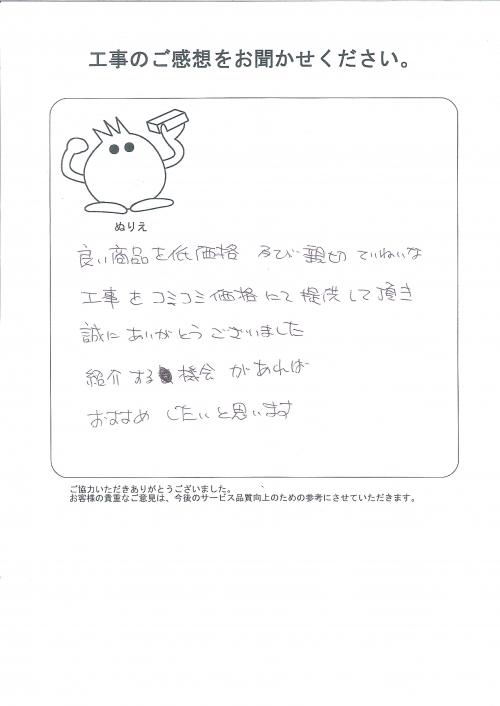 工事のご感想をお聞かせください。
ぬりえ
良い商品を低価格 及び 親切 ていねいな
工事をコミコミ価格にて提供して頂き
誠にありがとうございました
紹介する機会があれば
おすすめしたいと思います
ご協力いただきありがとうございました。
お客様の貴重なご意見は、今後のサービス品質向上のための参考にさせていただきます。